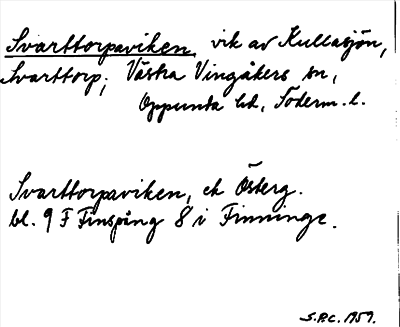 Svarttorpaviken, vik av Kullasjön,
Svarttorp, Västra Vingåkers sn,
Oppunda hd, Söderm. l.
Svarttorpaviken, ek Österg.
bl. 9 F Finspång 8 i Finninge.
S.P.C. 1959.